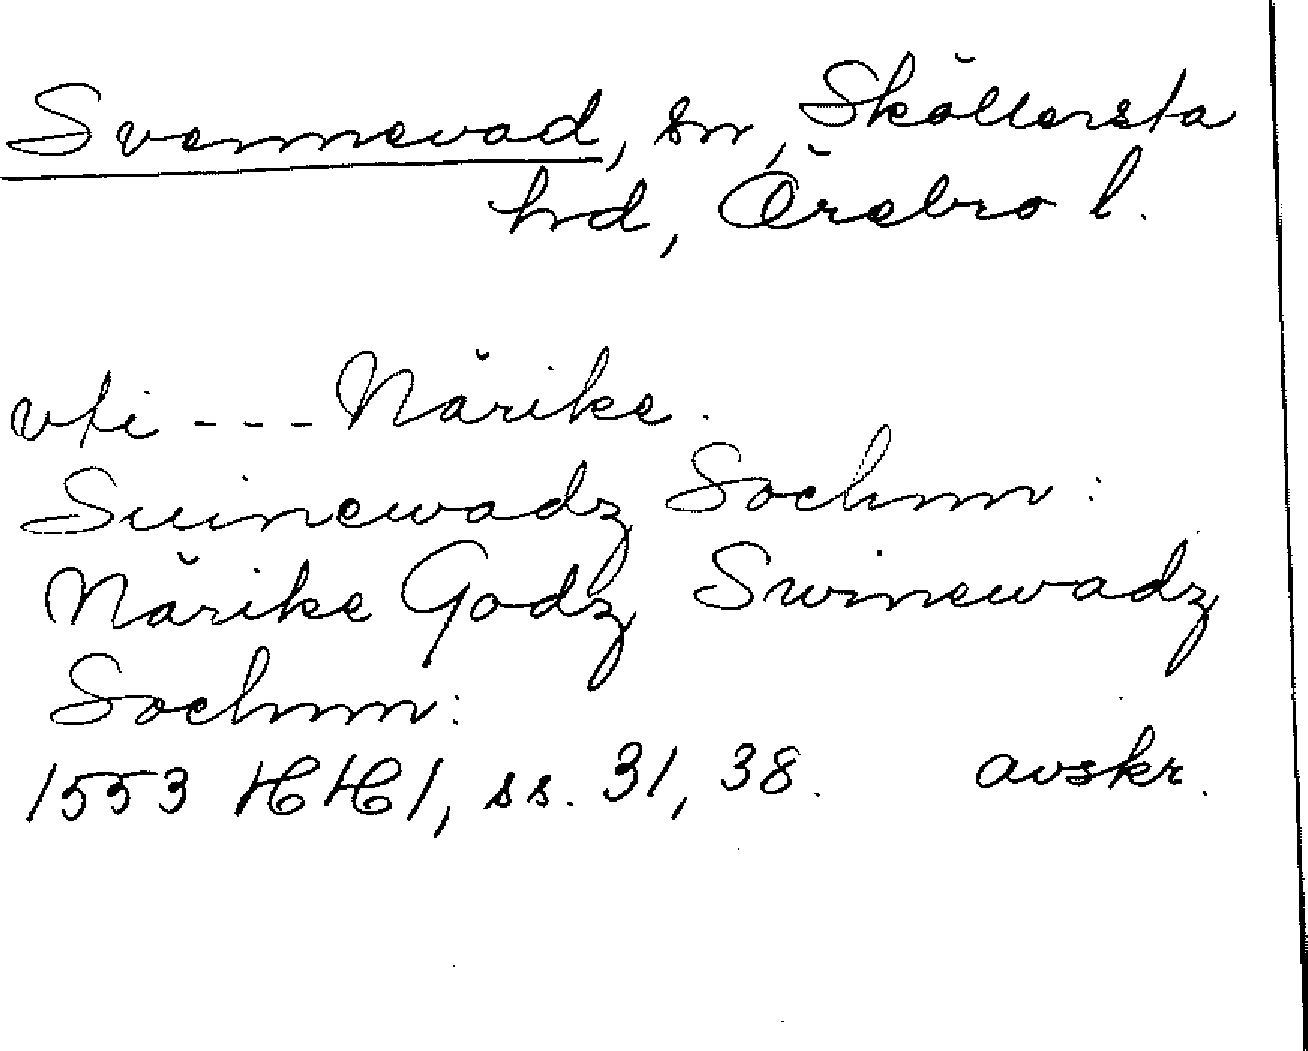 Svennevad, sn, Sköllersta
hd, Örebro l.
vti --- Närike.
Suinewadz Sochnn:
Närike Godz Swinewadz
Sochnn:
1553 HH1, ss. 31, 38. avskr.